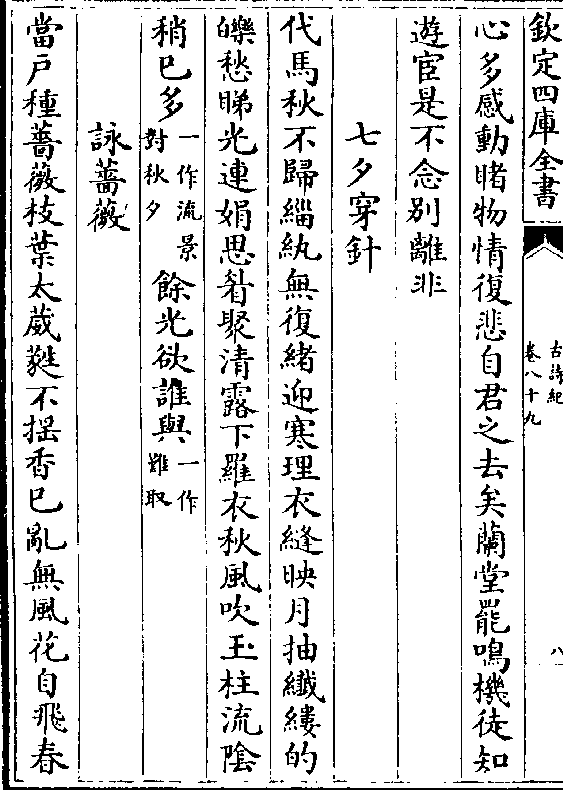 欽定四庫全書
古詩紀
卷八十九
八
心多感動睹物情復悲自君之去矣蘭堂罷鳴機徒知
遊宦是不念别離非
七夕穿針
代馬秋不歸緇紈無復緒迎寒理衣縫映月抽纖縷的
皪愁睇光連娟思眉聚清露下羅衣秋風吹玉柱流陰
稍已多一作流景對秋夕餘光欲誰與一作難取
詠薔薇
當戶種薔薇枝葉太葳蕤不摇香已亂無風花自飛春